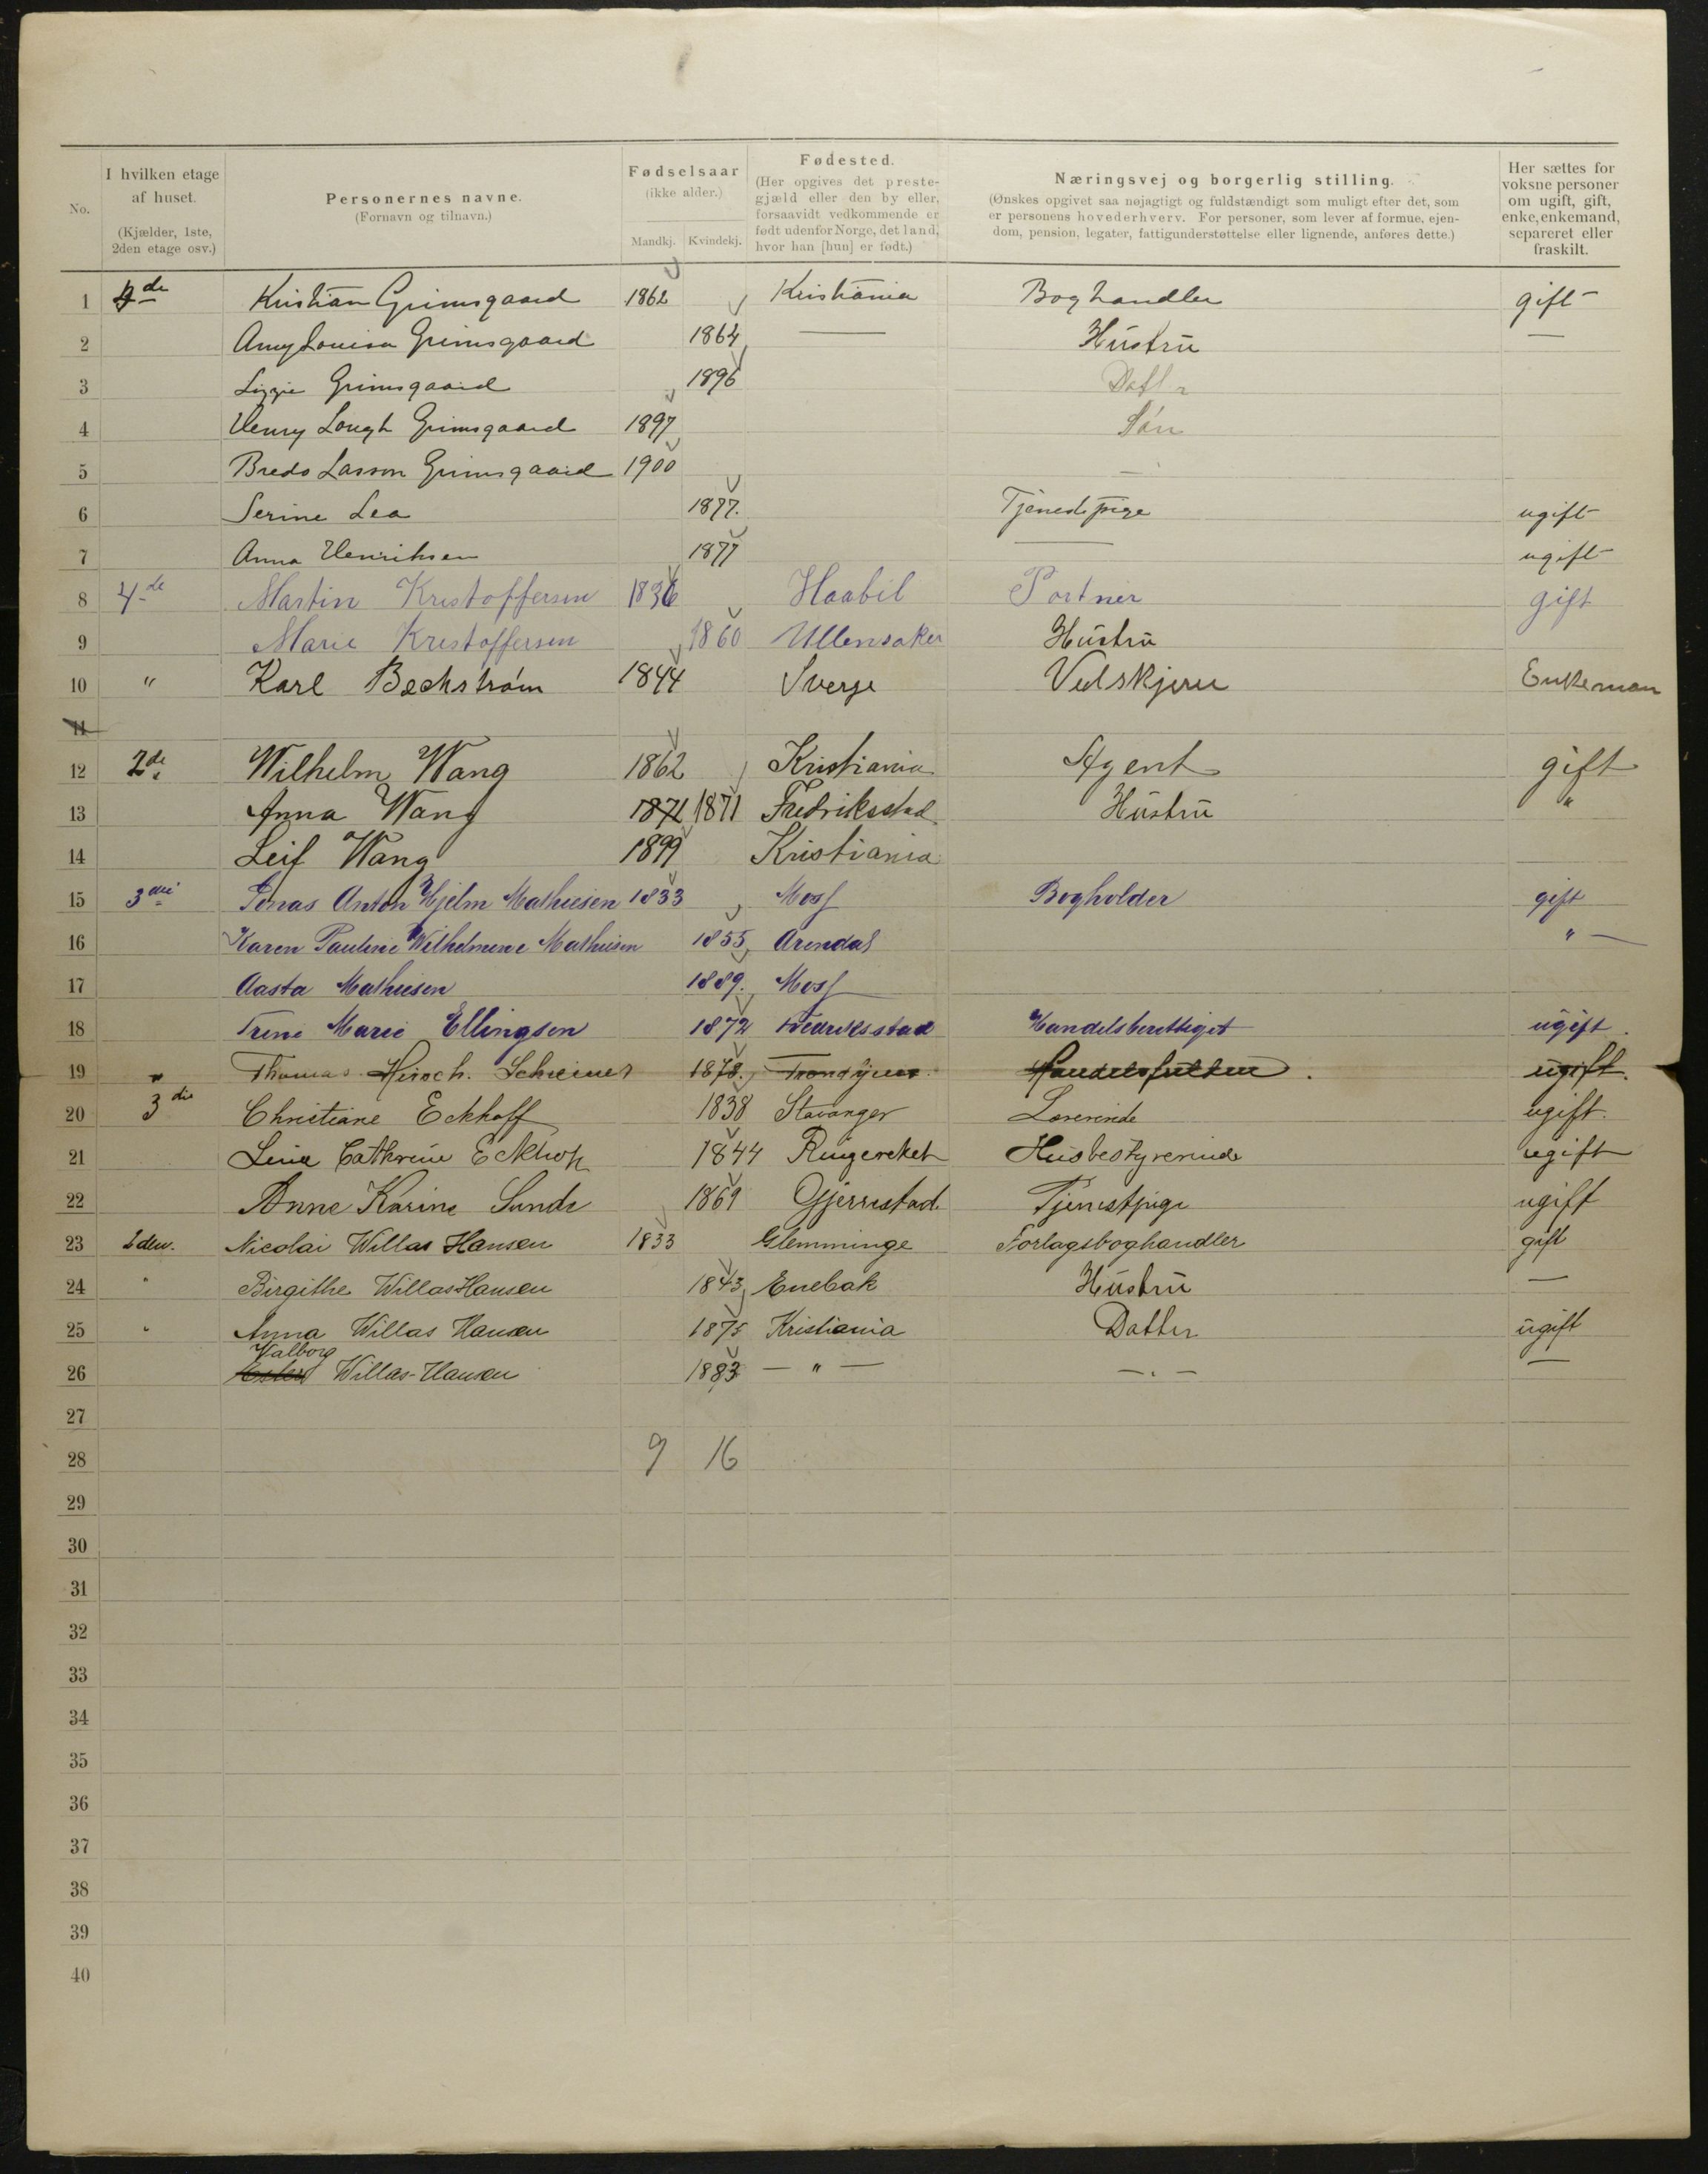 No.
I hvilken etage af huset. (Kjælder, 1ste, 2den etage osv.)
Personernes navne. (Fornavn og tilnavn.)
Fødselsaar (ikke alder.) Mandkj. Kvindekj.
Fødested. (Her opgives det prestegjæld eller den by eller, forsaavidt vedkommende er født udenfor Norge, det land, hvor han [hun] er født.)
Næringsvej og borgerlig stilling. (Ønskes opgivet saa nøjagtigt og fuldstændigt som muligt efter det, som er personens hovederhverv. For personer, som lever af formue, ejendom, pension, legater, fattigunderstøttelse eller lignende, anføres dette.)
Her sættes for voksne personer om ugift, gift, enke, enkemand, separeret eller fraskilt.
1 de Kristian Grimsgaard 1862 Kristiania Boghandler gift
2 Amy Louisa Grimsgaard 1864 — Hustru —
3 Lizzie Grimsgaard 1896 Datter
4 Henry Lough Grimsgaard 1897 Søn
5 Bredo Lasson Grimsgaard 1900 —
6 Serine Lea 1877. Tjenestepige ugift
7 Anna Henriksen 1877 — ugift
8 4de Martin Kristoffersen 1836 Haabil Portner gift
9 Marie Kristoffersen 1860 Ullensaker Hustru
10 " Karl Beckstrøm 1844 Sverje Vedskjerer Enkeman
11
12 2de Wilhelm Wang 1862 Kristiania Agent gift
13 Anna Wang 1871 1871 Fredriksstad Hustru "
14 Leif Wang 1899 Kristiania
15 3die Jonas Anton Hjelm Mathiesen 1833 Moss Bogholder gift
16 Karen Pauline Wilhelmine Mathiesen 1855 Arendal " —
17 Aasta Mathiesen 1889. Moss
18 Trine Marie Ellingsen 1872 Fredriksstad Handelsberettiget ugift.
19 Thomas Hirsch. Schreiner 1878. Trondhjem. ugift.
20 3die Christiane Eckhoff 1838 Stavanger Lærerinde ugift.
21 Lina Cathrine Eckhoff 1844 Ringereket Husbestyrerinde ugift
22 Anne Karine Sunde 1869 Gjerrestad. Tjenestpige ugift
23 2den. Nicolai Willas Hansen 1833 Glemminge Forlagsboghandler gift
24 " Birgithe Willas Hansen 1843 Enebak Hustru —
25 " Anna Willas Hansen 1875 Kristiania Datter ugift
Valborg
26 Willas-Hansen 1883 — " — — " — —
27
28 9 16
29
30
31
32
33
34
35
36
37
38
39
40